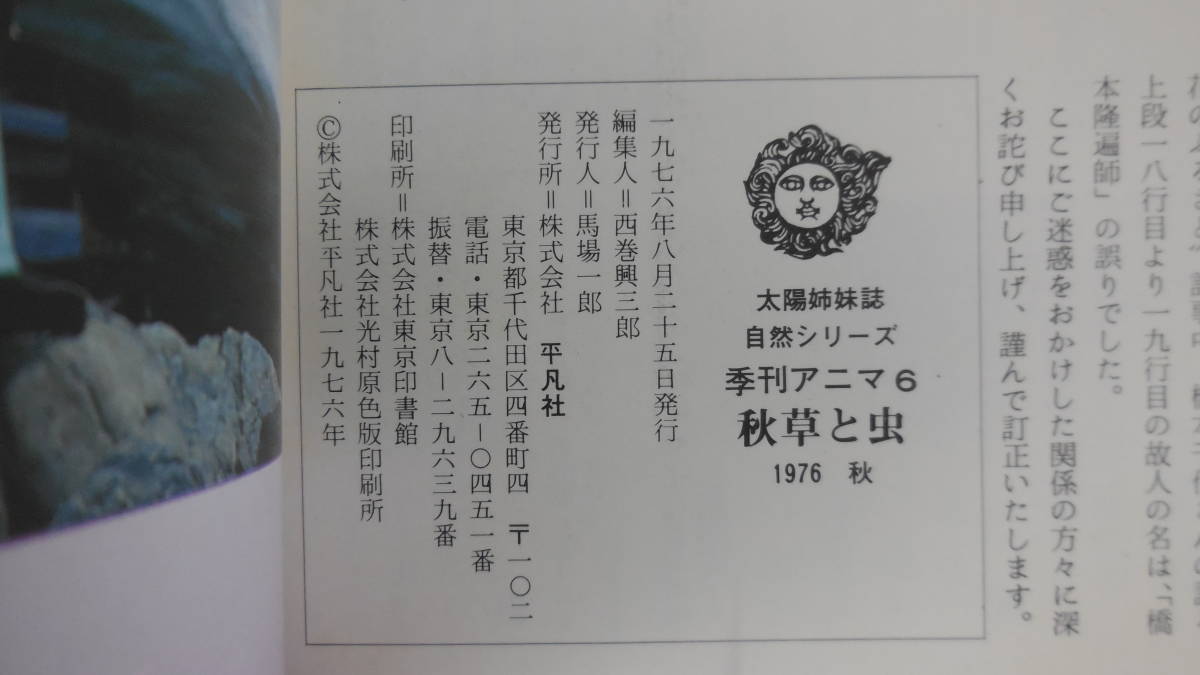 上段一八行目より一九行目の故人の名は、「橋
本隆遍師」の誤りでした。
ここにご迷惑をおかけした関係の方々に深
くお詫び申し上げ、謹んで訂正いたします。
太陽姉妹誌
自然シリーズ
季刊アニマ6
秋草と虫
1976 秋
一九七六年八月二十五日発行
編集人=西巻興三郎
発行人=馬場一郎
発行所=株式会社 平凡社
東京都千代田区四番町四 〒一〇二
電話・東京二六五-〇四五一番
振替・東京八-二九六三九番
印刷所=株式会社東京印書館
株式会社光村原色版印刷所
©株式会社平凡社一九七六年